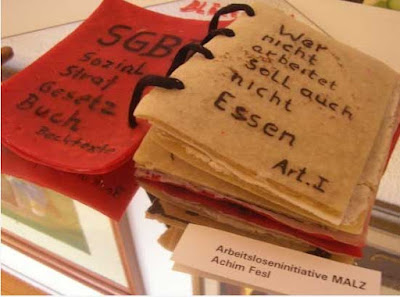 SGB
Sozial
Straf
Gesetz
Buch
Rechtexte
Wer
nicht
arbeitet
soll auch
nicht
Essen
Art. I
Arbeitsloseninitiative MALZ
Achim Fesl